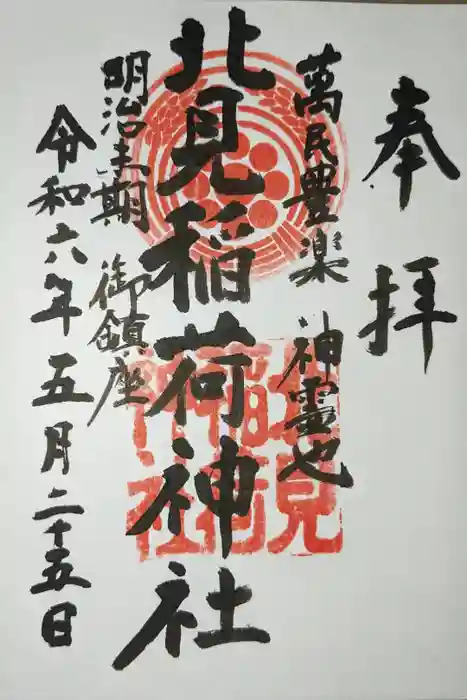 奉拝
萬民豊楽 神霊也
北見稲荷神社
明治初期 御鎮座
令和六年五月二十五日
北見
稲荷
神社